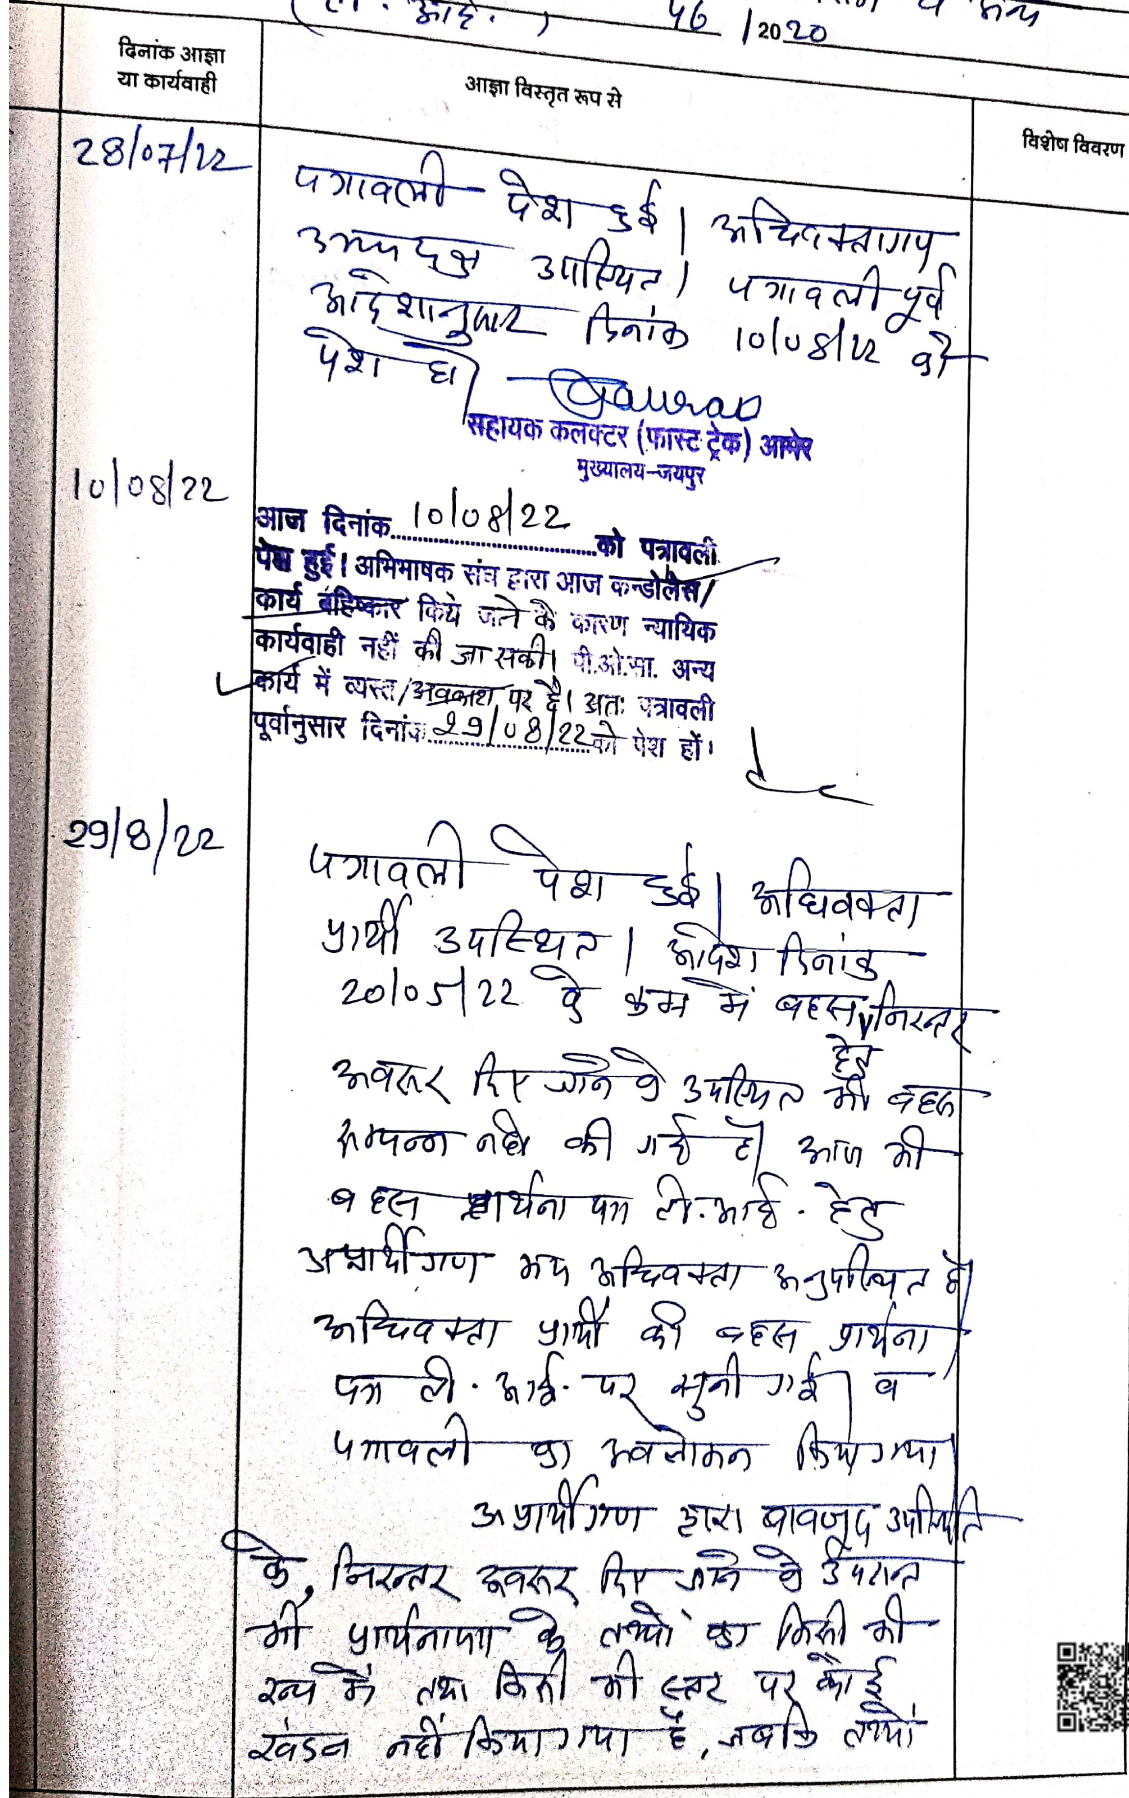 (टी. आई.) 46 /2020 व अन्य
दिनांक आज्ञा
या कार्यवाही
आज्ञा विस्तृत रूप से
विशेष विवरण
28/07/22
पत्रावली पेश हुई। अधिवक्तागण
उभयपक्ष उपस्थित। पत्रावली पूर्व
आदेशानुसार दिनांक 10/08/22 को
पेश हो।
Gaurav
सहायक कलक्टर (फास्ट ट्रेक) आमेर
मुख्यालय-जयपुर
10/08/22
आज दिनांक 10/08/22 को पत्रावली
पेश हुई। अभिभाषक संघ द्वारा आज कन्डोलेंस/
कार्य बहिष्कार किये जाने के कारण न्यायिक
कार्यवाही नहीं की जा सकी। पी.ओ.सा. अन्य
कार्य में व्यस्त/अवकाश पर है। अतः पत्रावली
पूर्वानुसार दिनांक 29/08/22 को पेश हों।
29/8/22
पत्रावली पेश हुई। अधिवक्ता
प्रार्थी उपस्थित। आदेश दिनांक
20/05/22 के क्रम में बहस हेतु निरन्तर
अवसर दिए जाने के उपस्थित भी बहस
सम्पन्न नहीं की गई है। आज भी
बहस प्रार्थना पत्र टी.आई. हेतु
अप्रार्थीगण मय अधिवक्ता अनुपस्थित है।
अधिवक्ता प्रार्थी की बहस प्रार्थना
पत्र टी.आई. पर सुनी गई। व
पत्रावली का अवलोकन किया गया।
अप्रार्थीगण द्वारा बावजूद उपस्थिति
के, निरन्तर अवसर दिए जाने के उपरान्त
भी प्रार्थनापत्र के तथ्यों का किसी भी
रूप में तथा किसी भी स्तर पर कोई
खंडन नहीं किया गया है, जबकि तथ्यों